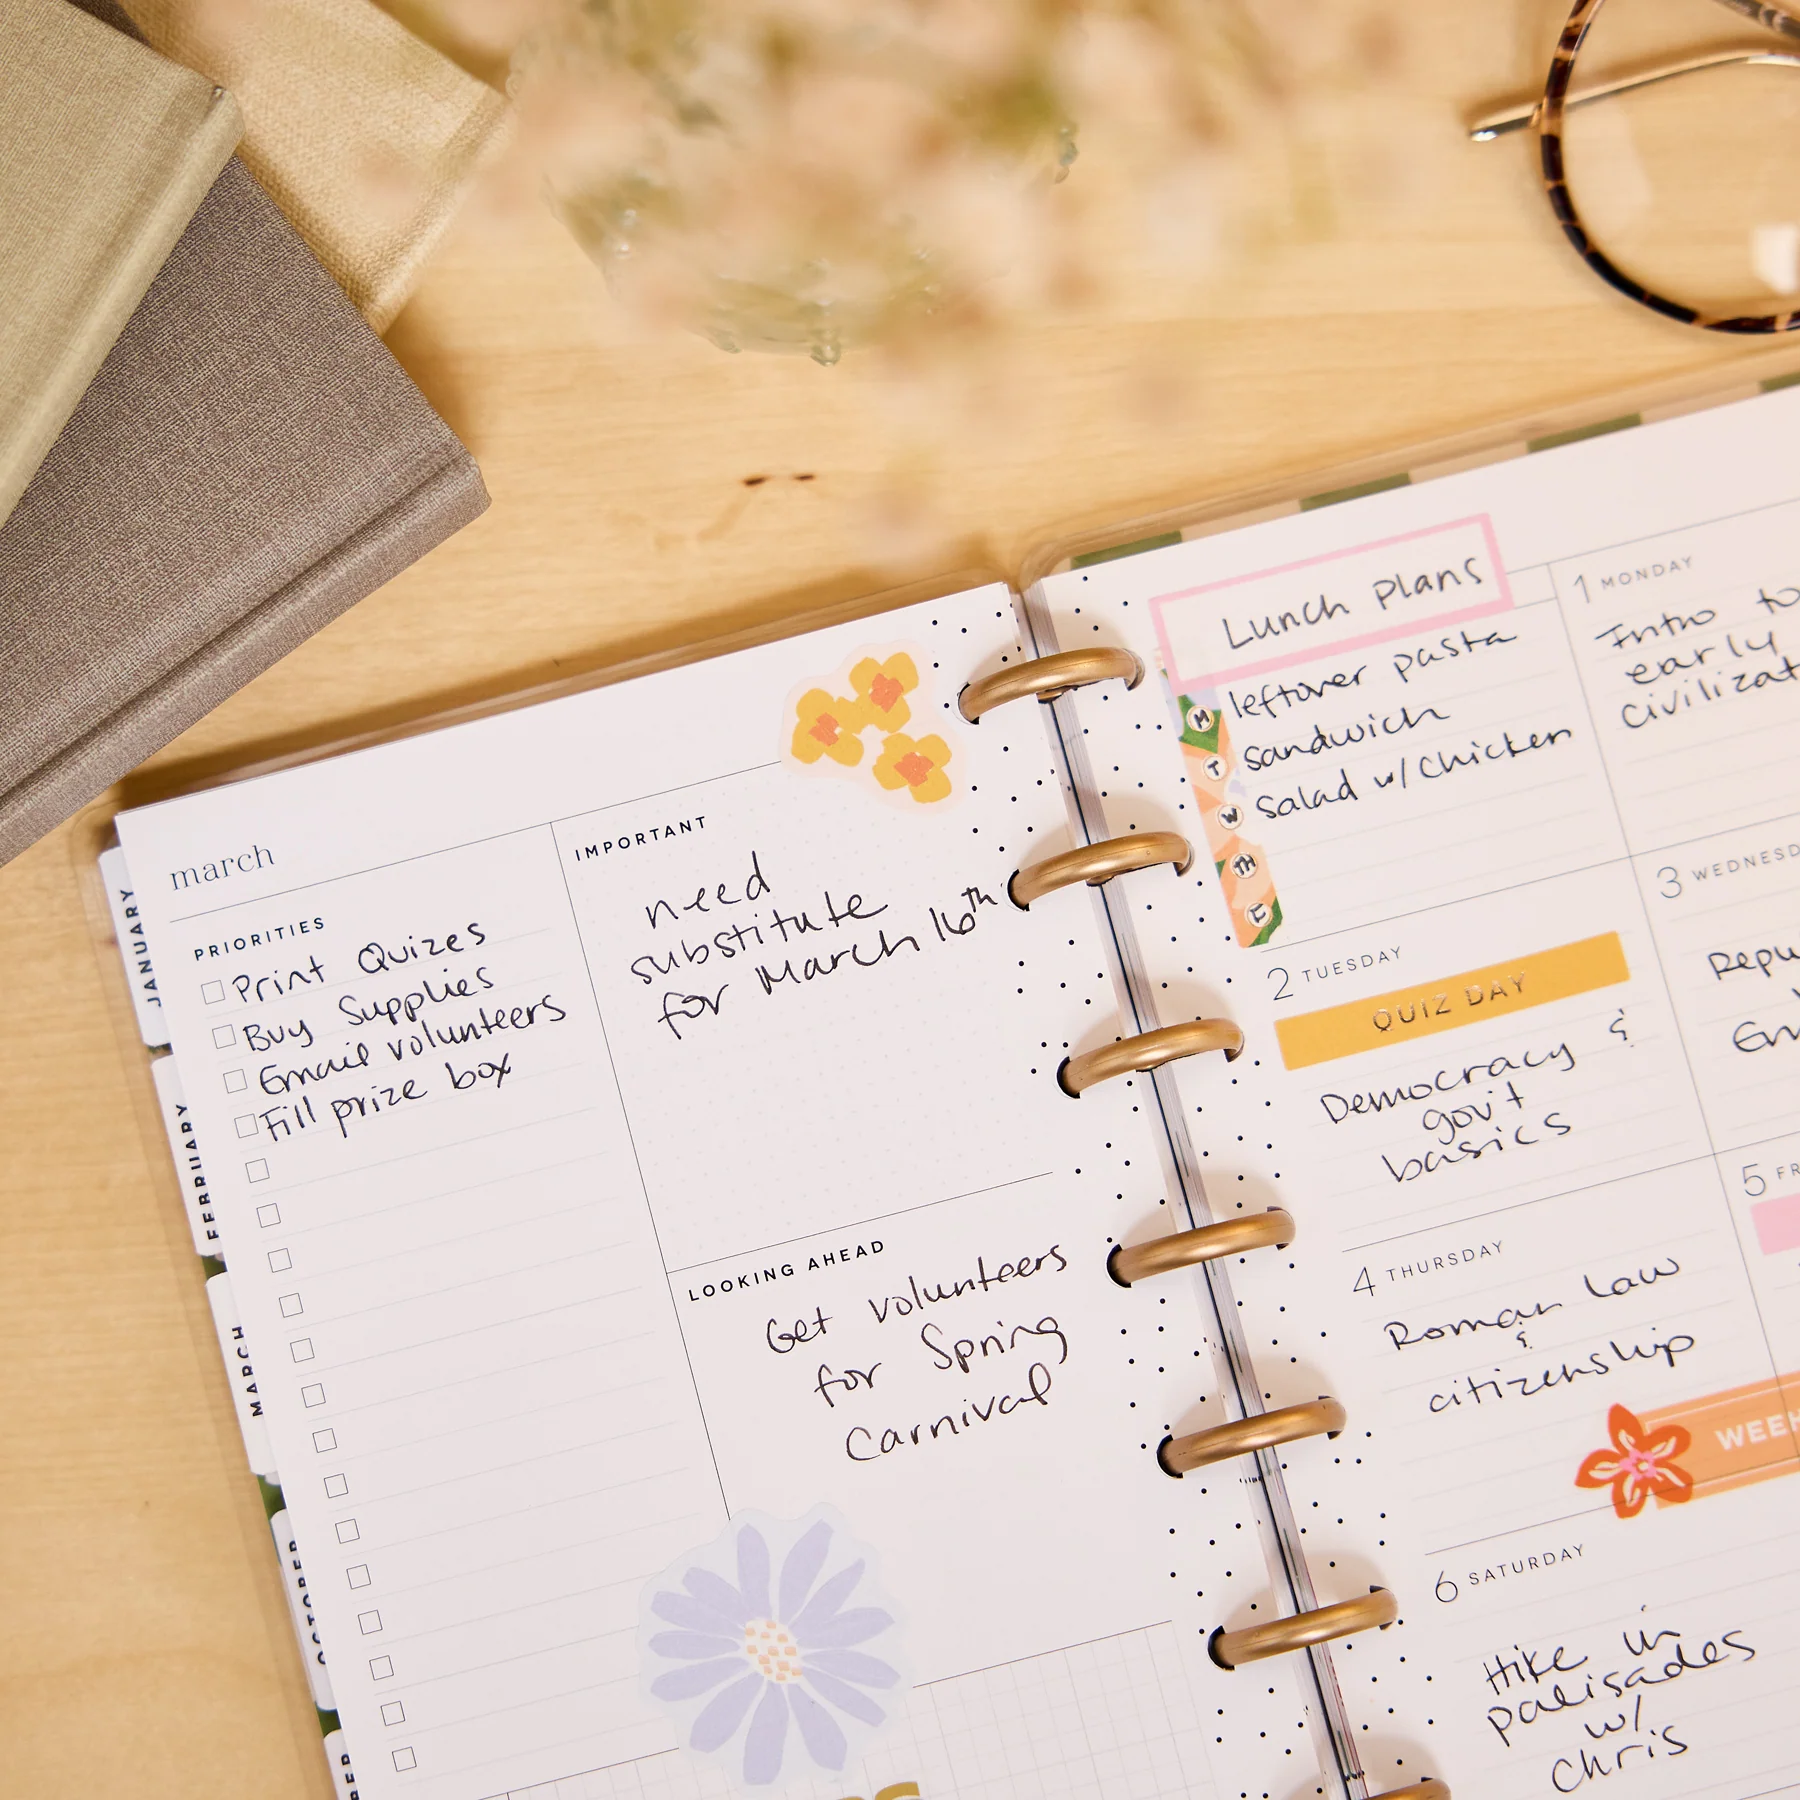 march
PRIORITIES
Print Quizes
Buy Supplies
Email volunteers
Fill prize box
IMPORTANT
need
substitute
for March 16th
LOOKING AHEAD
Get volunteers
for Spring
Carnival
JANUARY
FEBRUARY
MARCH
OCTOBER
BER
Lunch Plans
M leftover pasta
T sandwich
W salad w/ chicken
TH
F
1 MONDAY
Intro to
early
civilizat
2 TUESDAY
QUIZ DAY
Democracy &
gov't
basics
3 WEDNESD
Repu
Em
4 THURSDAY
Roman Law
&
citizenship
5 FR
WEEK
6 SATURDAY
Hike in
palisades
w/
Chris